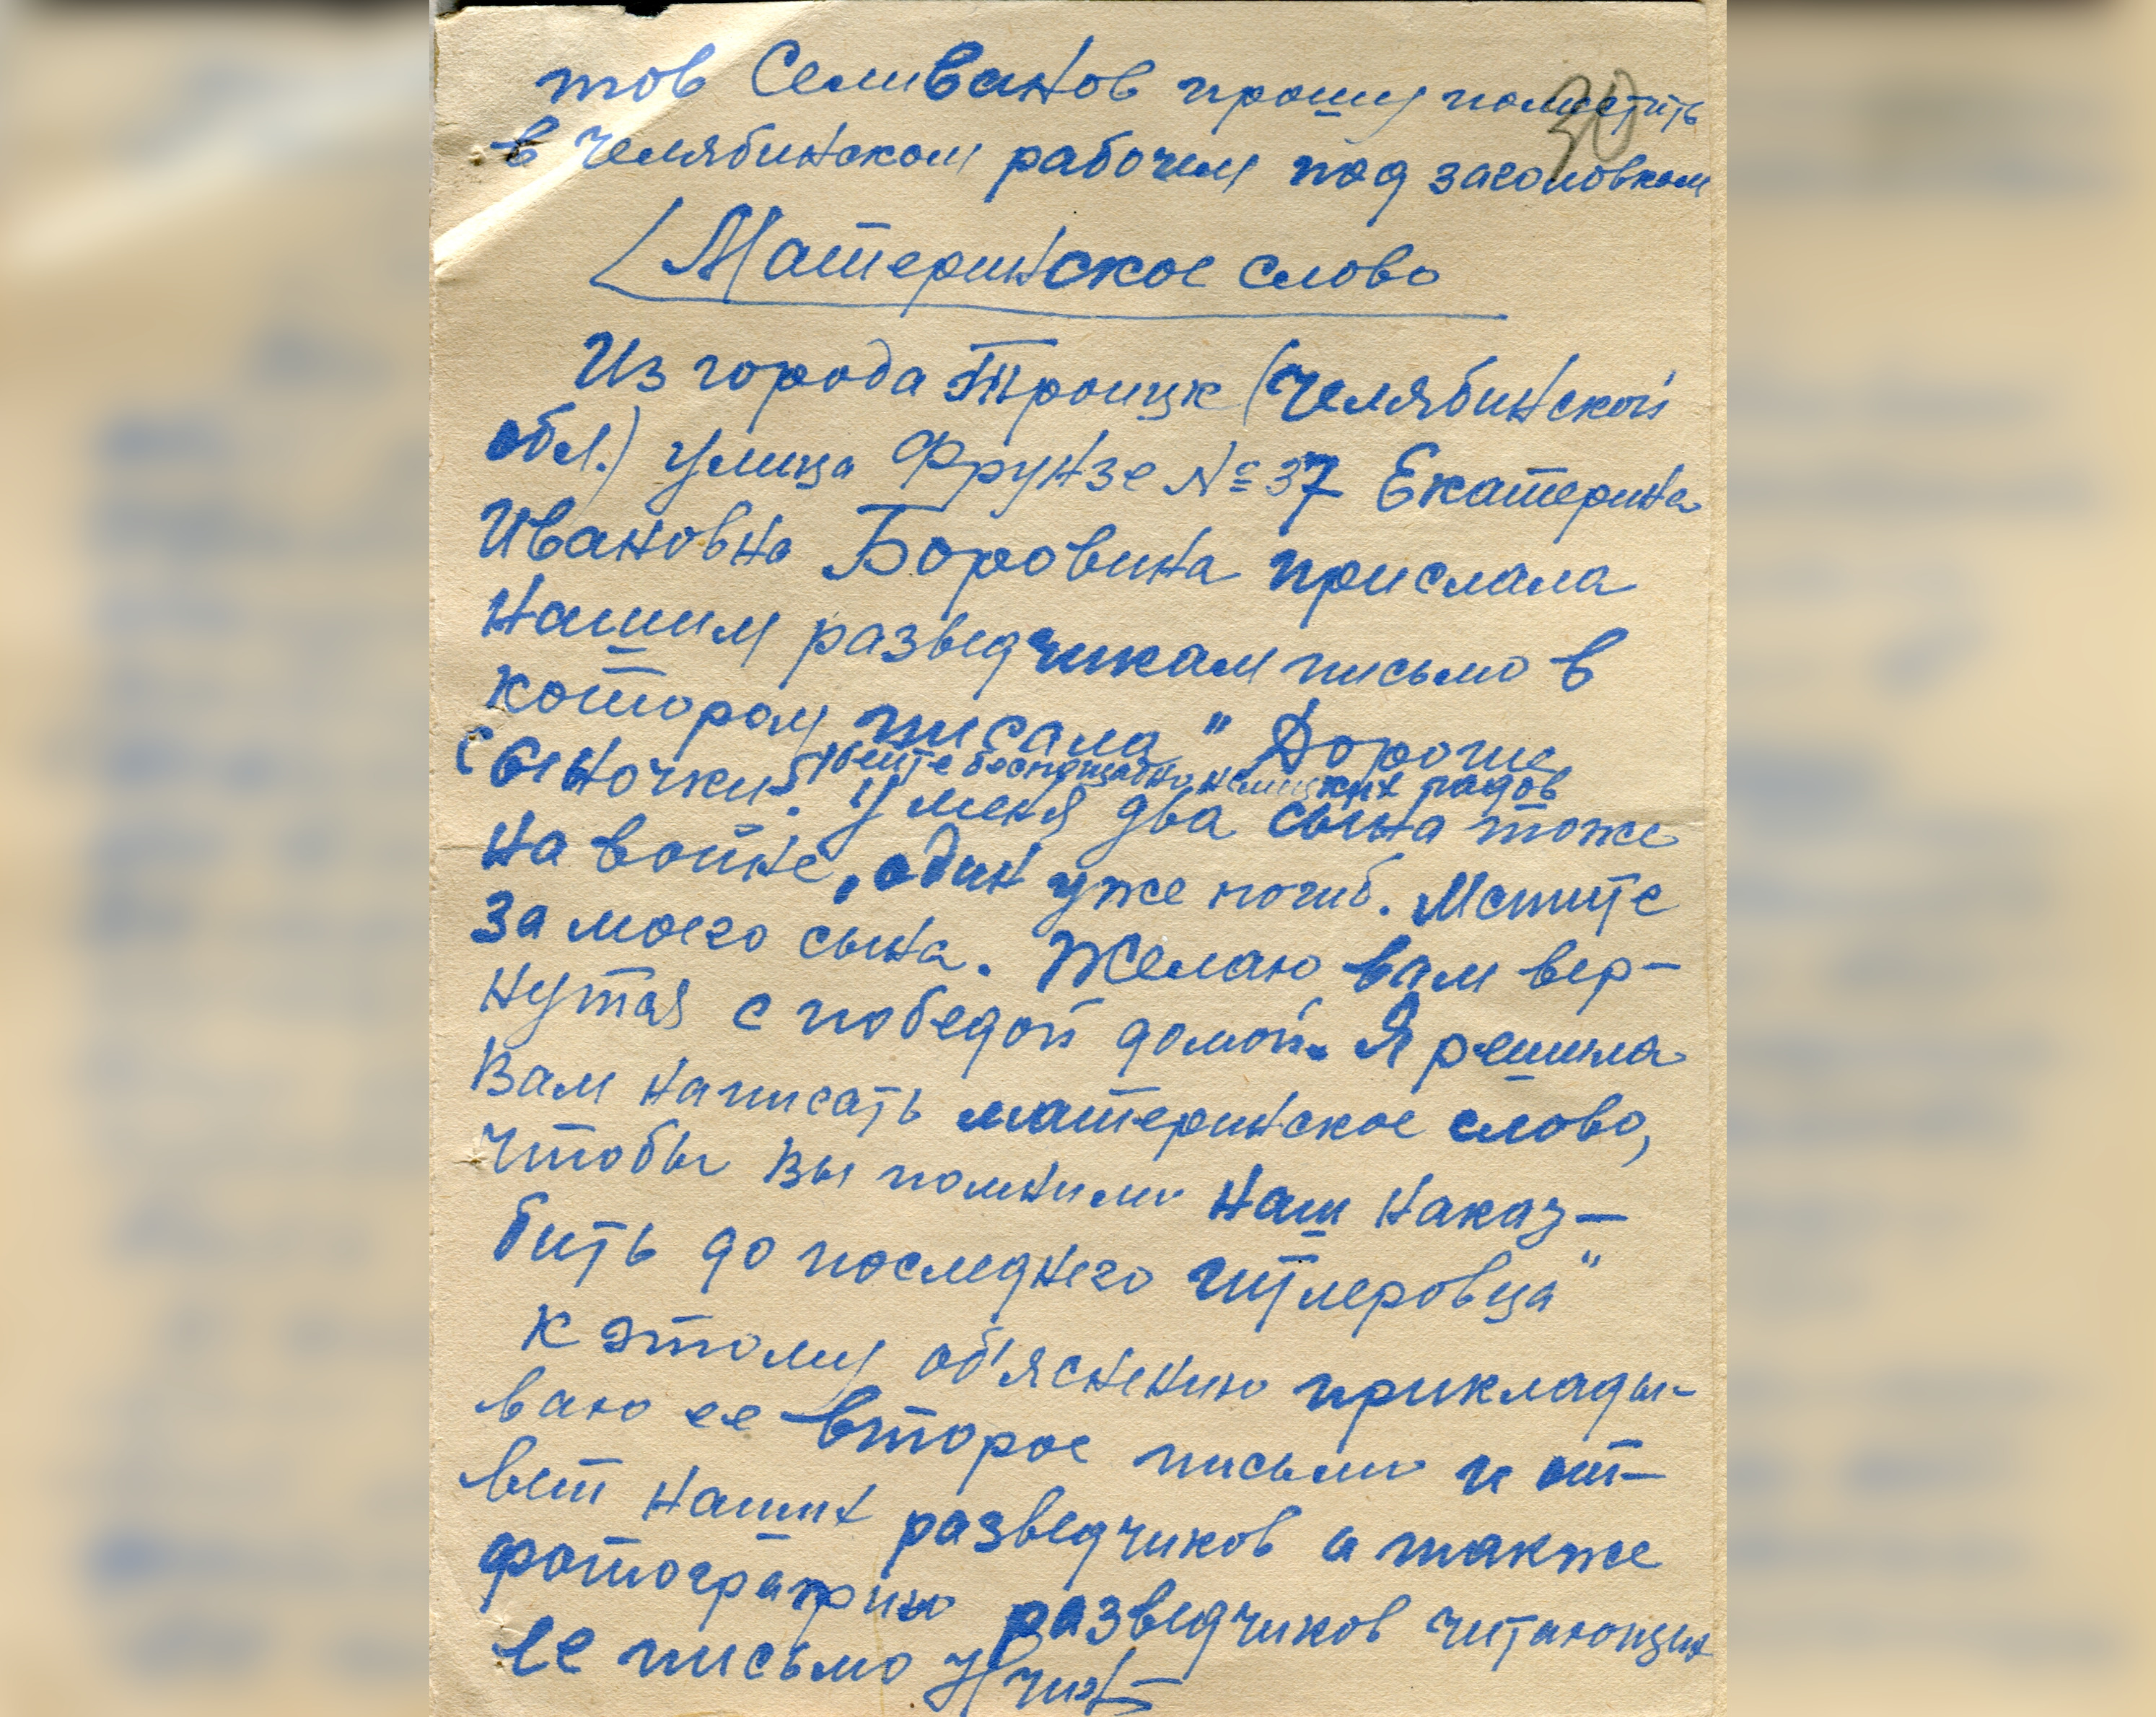 30
тов Селиванов прошу поместить
в Челябинском рабочем под заголовком
Материнское слово
Из города Троицк (Челябинской
обл.) улица Фрунзе №37 Екатерина
Ивановна Боровина прислала
нашим разведчикам письмо в
котором писала " Дорогие
бейте беспощадно немецких гадов
сыночки. У меня два сына тоже
на войне, один уже погиб. Мстите
за моего сына. Желаю вам вер-
нутся с победой домой. Я решила
Вам написать материнское слово,
чтобы Вы помнили наш наказ —
бить до последнего гитлеровца"
К этому об'яснению приклады-
ваю ее второе письмо и от-
вет наших разведчиков а также
фотографию разведчиков читающих
ее письмо